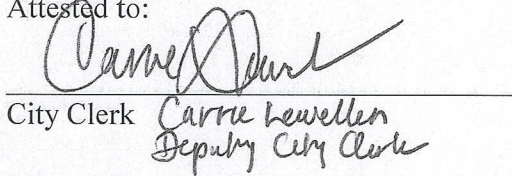 Attested to:
City Clerk Carrie Lewellen
Deputy City Clerk